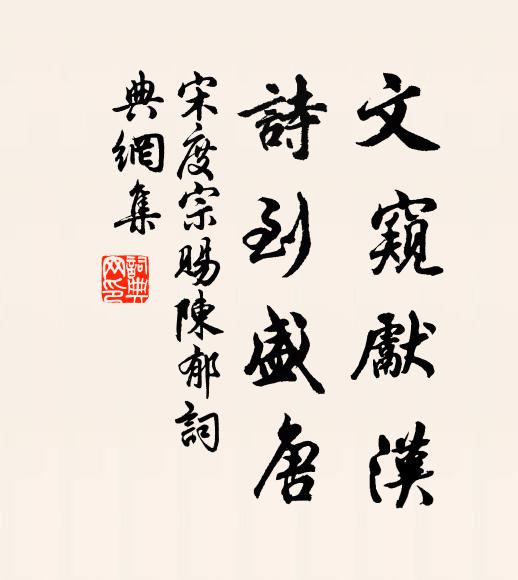 文窺獻漢
詩到盛唐
宋度宗賜陳郁詞
典網集
詞典
网印